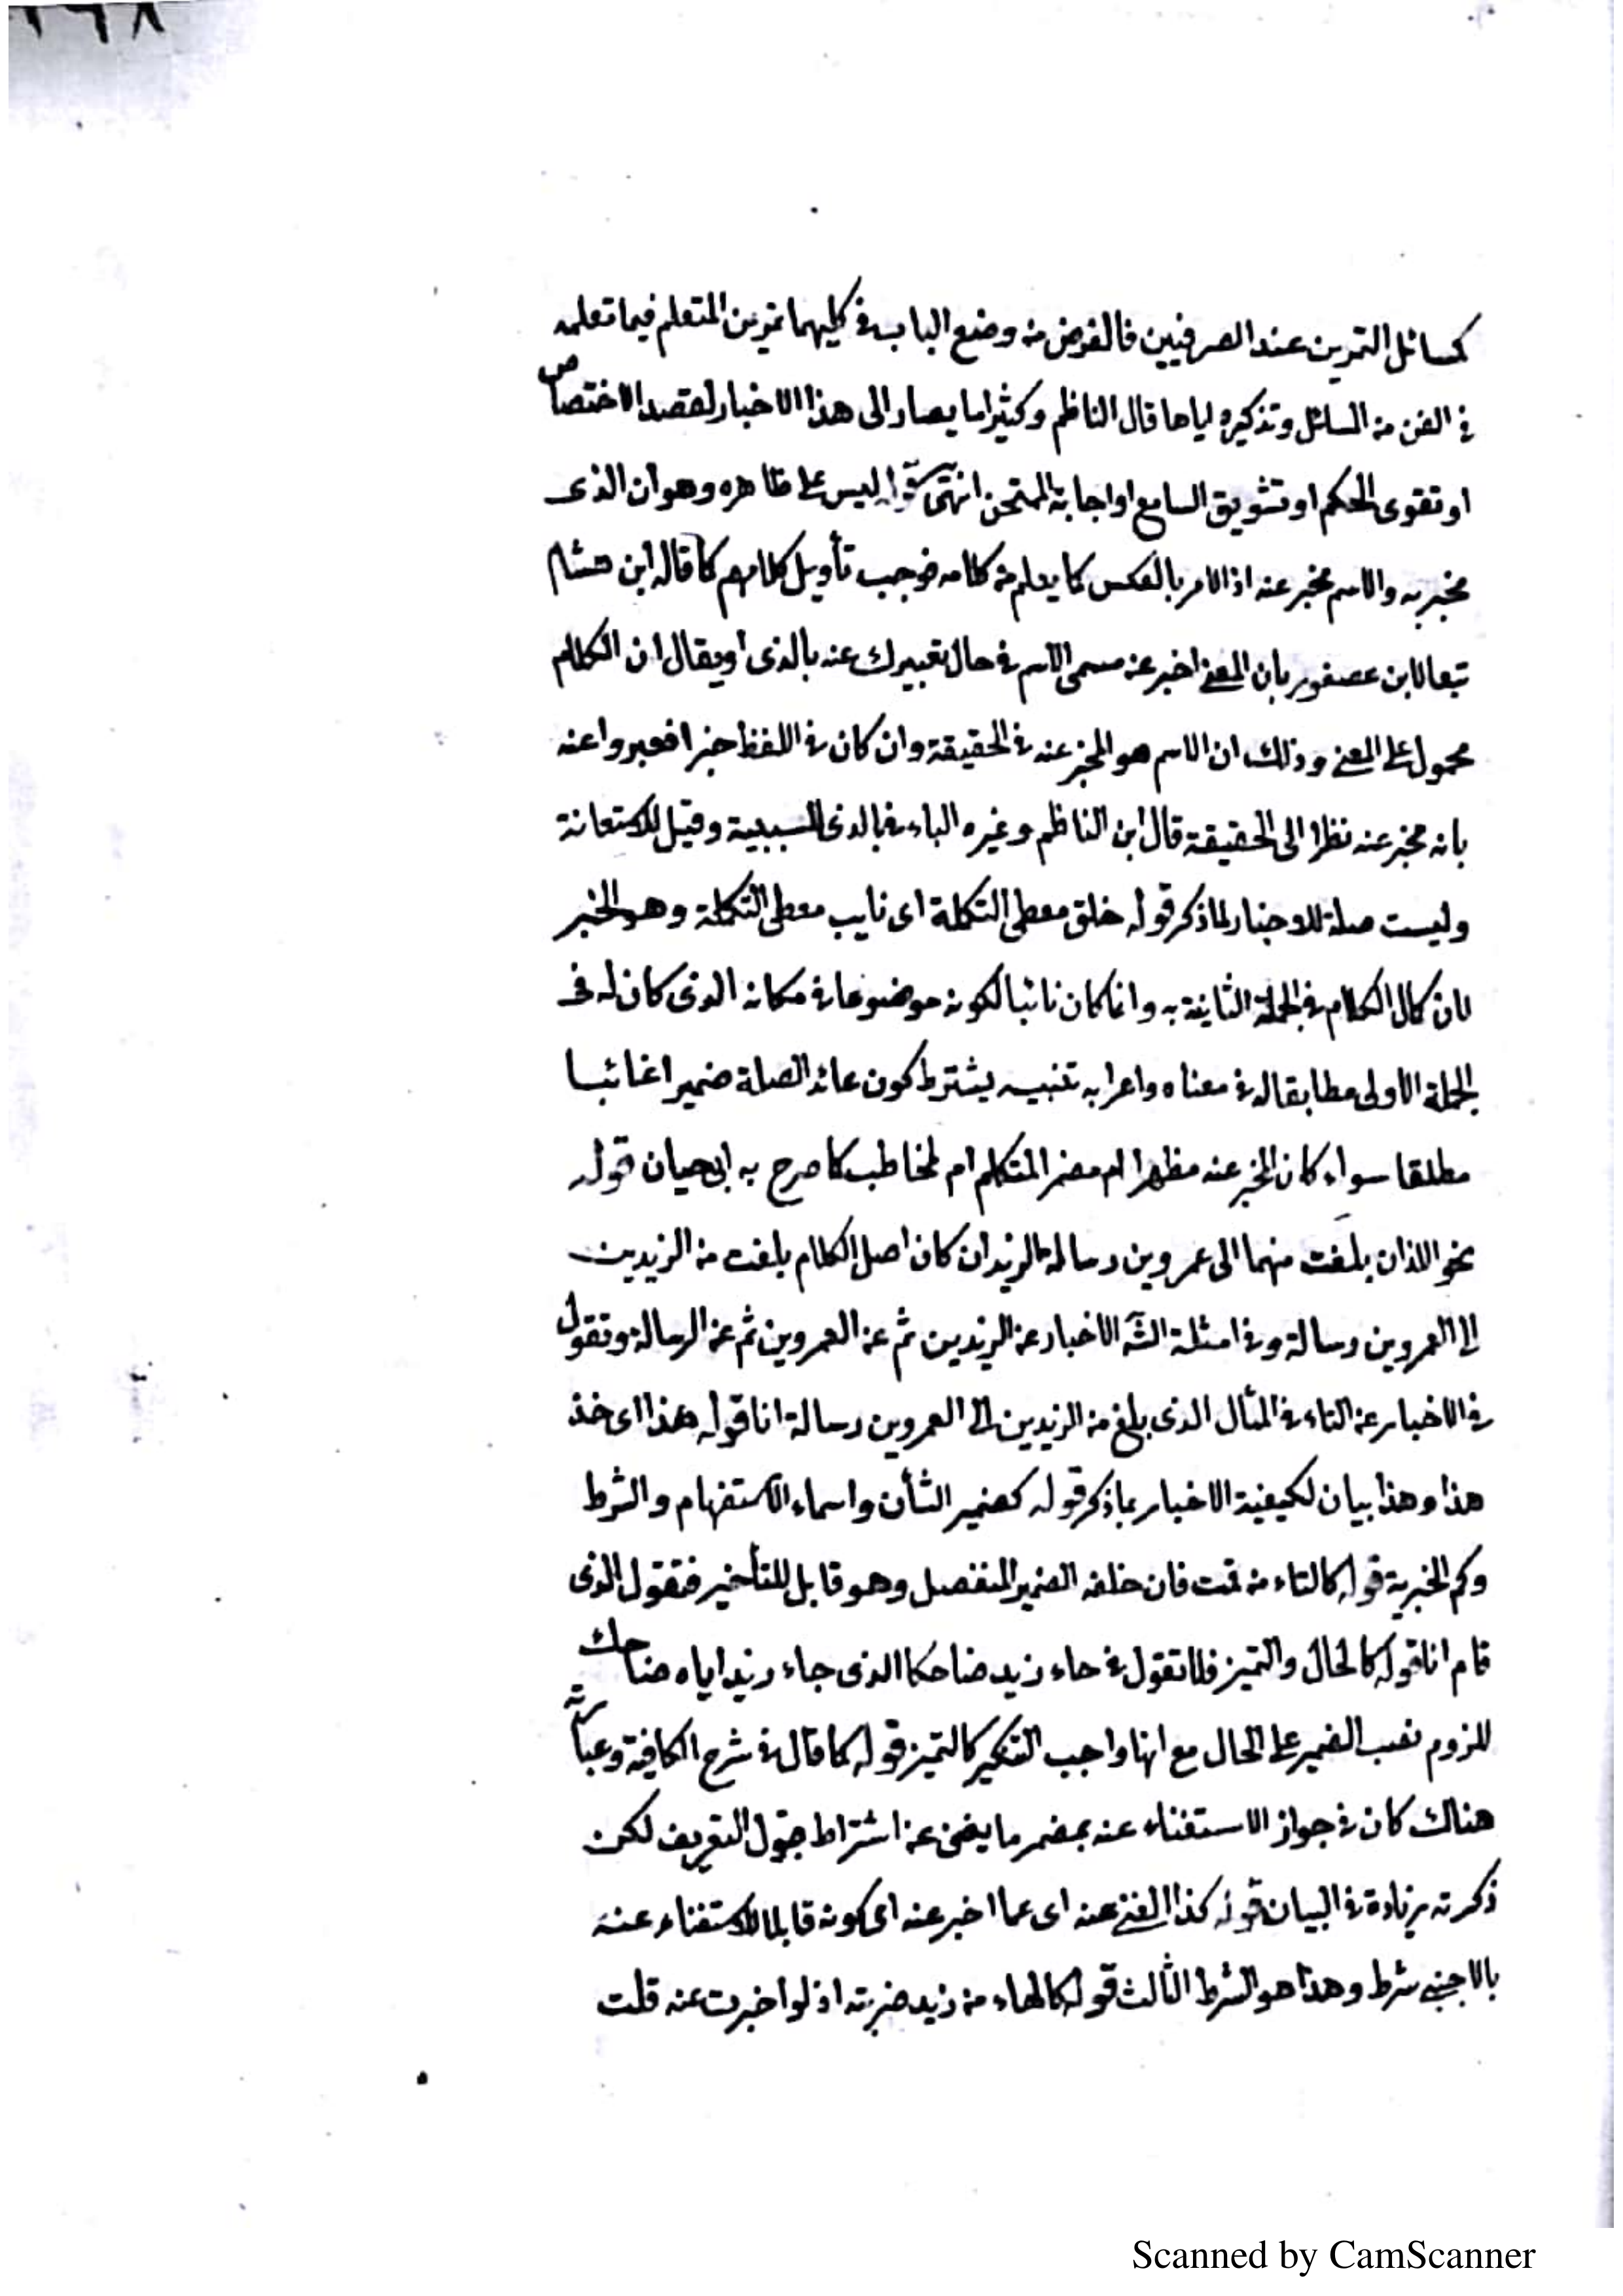 كمسائل التمرين عند الصرفيين فالغرض من وضع الباب في كليهما تمرين المتعلم فيما تعلمه
في الفن من المسائل وتذكيره اياها قال الناظم وكثيرا ما يصار الى هذا الاخبار لقصد الاختصاص
او تقوى الحكم او تشويق السامع او اجابة الممتحن انتهى قوله ليس على ظاهره وهو ان الذى
مخبر به والاسم مخبر عنه اذ الامر بالعكس كما يعلم من كلامه فوجب تأويل كلامهم كما قاله ابن هشام
تبعا لابن عصفور بان المعنى اخبر عن مسمى الاسم في حال تعبيرك عنه بالذى أو يقال ان الكلام
محمول على المعنى وذلك ان الاسم هو المخبر عنه في الحقيقة وان كان في اللفظ خبرا فعبروا عنه
بانه مخبر عنه نظرا الى الحقيقة قال ابن الناظم وغيره الباء في بالذى للسببية وقيل للاستعانة
وليست صلة للاخبار لما ذكر قوله خلق معطى التكملة اى نايب معطى التكملة وهو الخبر
لان كمال الكلام في الجملة الثانية به وانما كان نائبا لكونه موضوعا في مكانه الذى كان له في
الجملة الاولى مطابقا له في معناه واعرابه تنبيه يشترط كون عائد الصلة ضميرا غائبا
مطلقا سواء كان المخبر عنه مظهرا ام مضمر المتكلم ام لمخاطب كما صرح به ابى حيان قوله
نحو اللذان بلغت منهما الى عمروين رسالة الزيدان كان اصل الكلام بلغت من الزيدين
الى العمروين رسالة وفي امثلة الشه الاخبار عن الزيدين ثم عن العمروين ثم عن الرسالة وتقول
في الاخبار عن التاء في المثال الذى بلغ من الزيدين الى العمروين رسالة انا قوله هذا اى خذ
هذا وهذا بيان لكيفية الاخبار بما ذكر قوله كضمير الشأن واسماء الاستفهام والشرط
وكم الخبرية قوله كالتاء من قمت فان خلفه الضمير المنفصل وهو قابل للتأخير فتقول الذى
قام انا قوله كالحال والتميز فلا تقول في جاء زيد ضاحكا الذى جاء زيد اياه ضاحك
للزوم نصب الضمير على الحال مع انها واجب التنكير كالتميز قوله كما قال في شرح الكافية وعبارته
هناك كان في جواز الاستغناء عنه بمضمر ما يغنى عن اشتراط قبول التعريف لكن
ذكرته زيادة في البيان قوله كذا الغنى عنه اى عما اخبر عنه اى كونه قابلا للاستغناء عنه
بالاجنبى شرط وهذا هو الشرط الثالث قوله كالهاء من زيد ضربته اذ لو اخبرت عنه قلت
Scanned by CamScanner